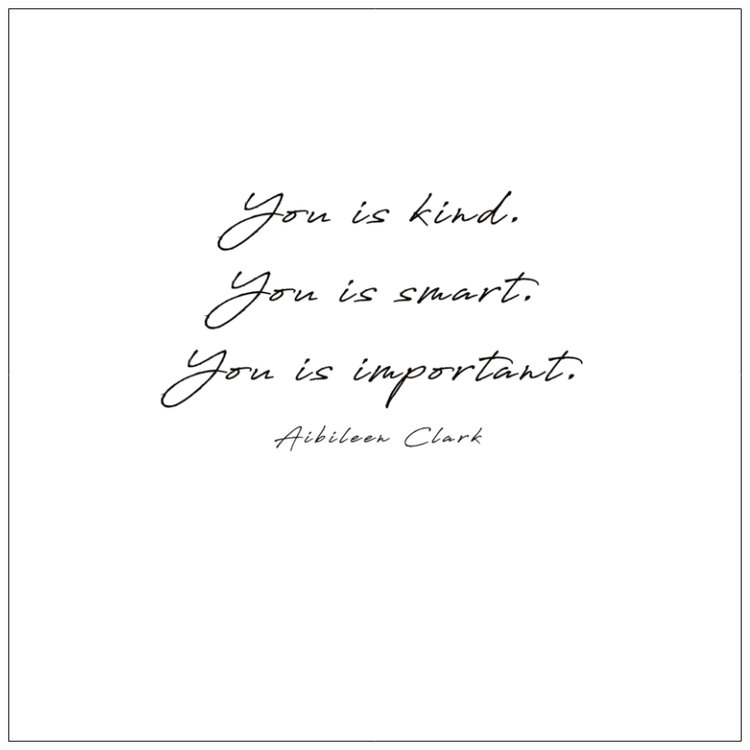 You is kind.
You is smart.
You is important.
Aibileen Clark